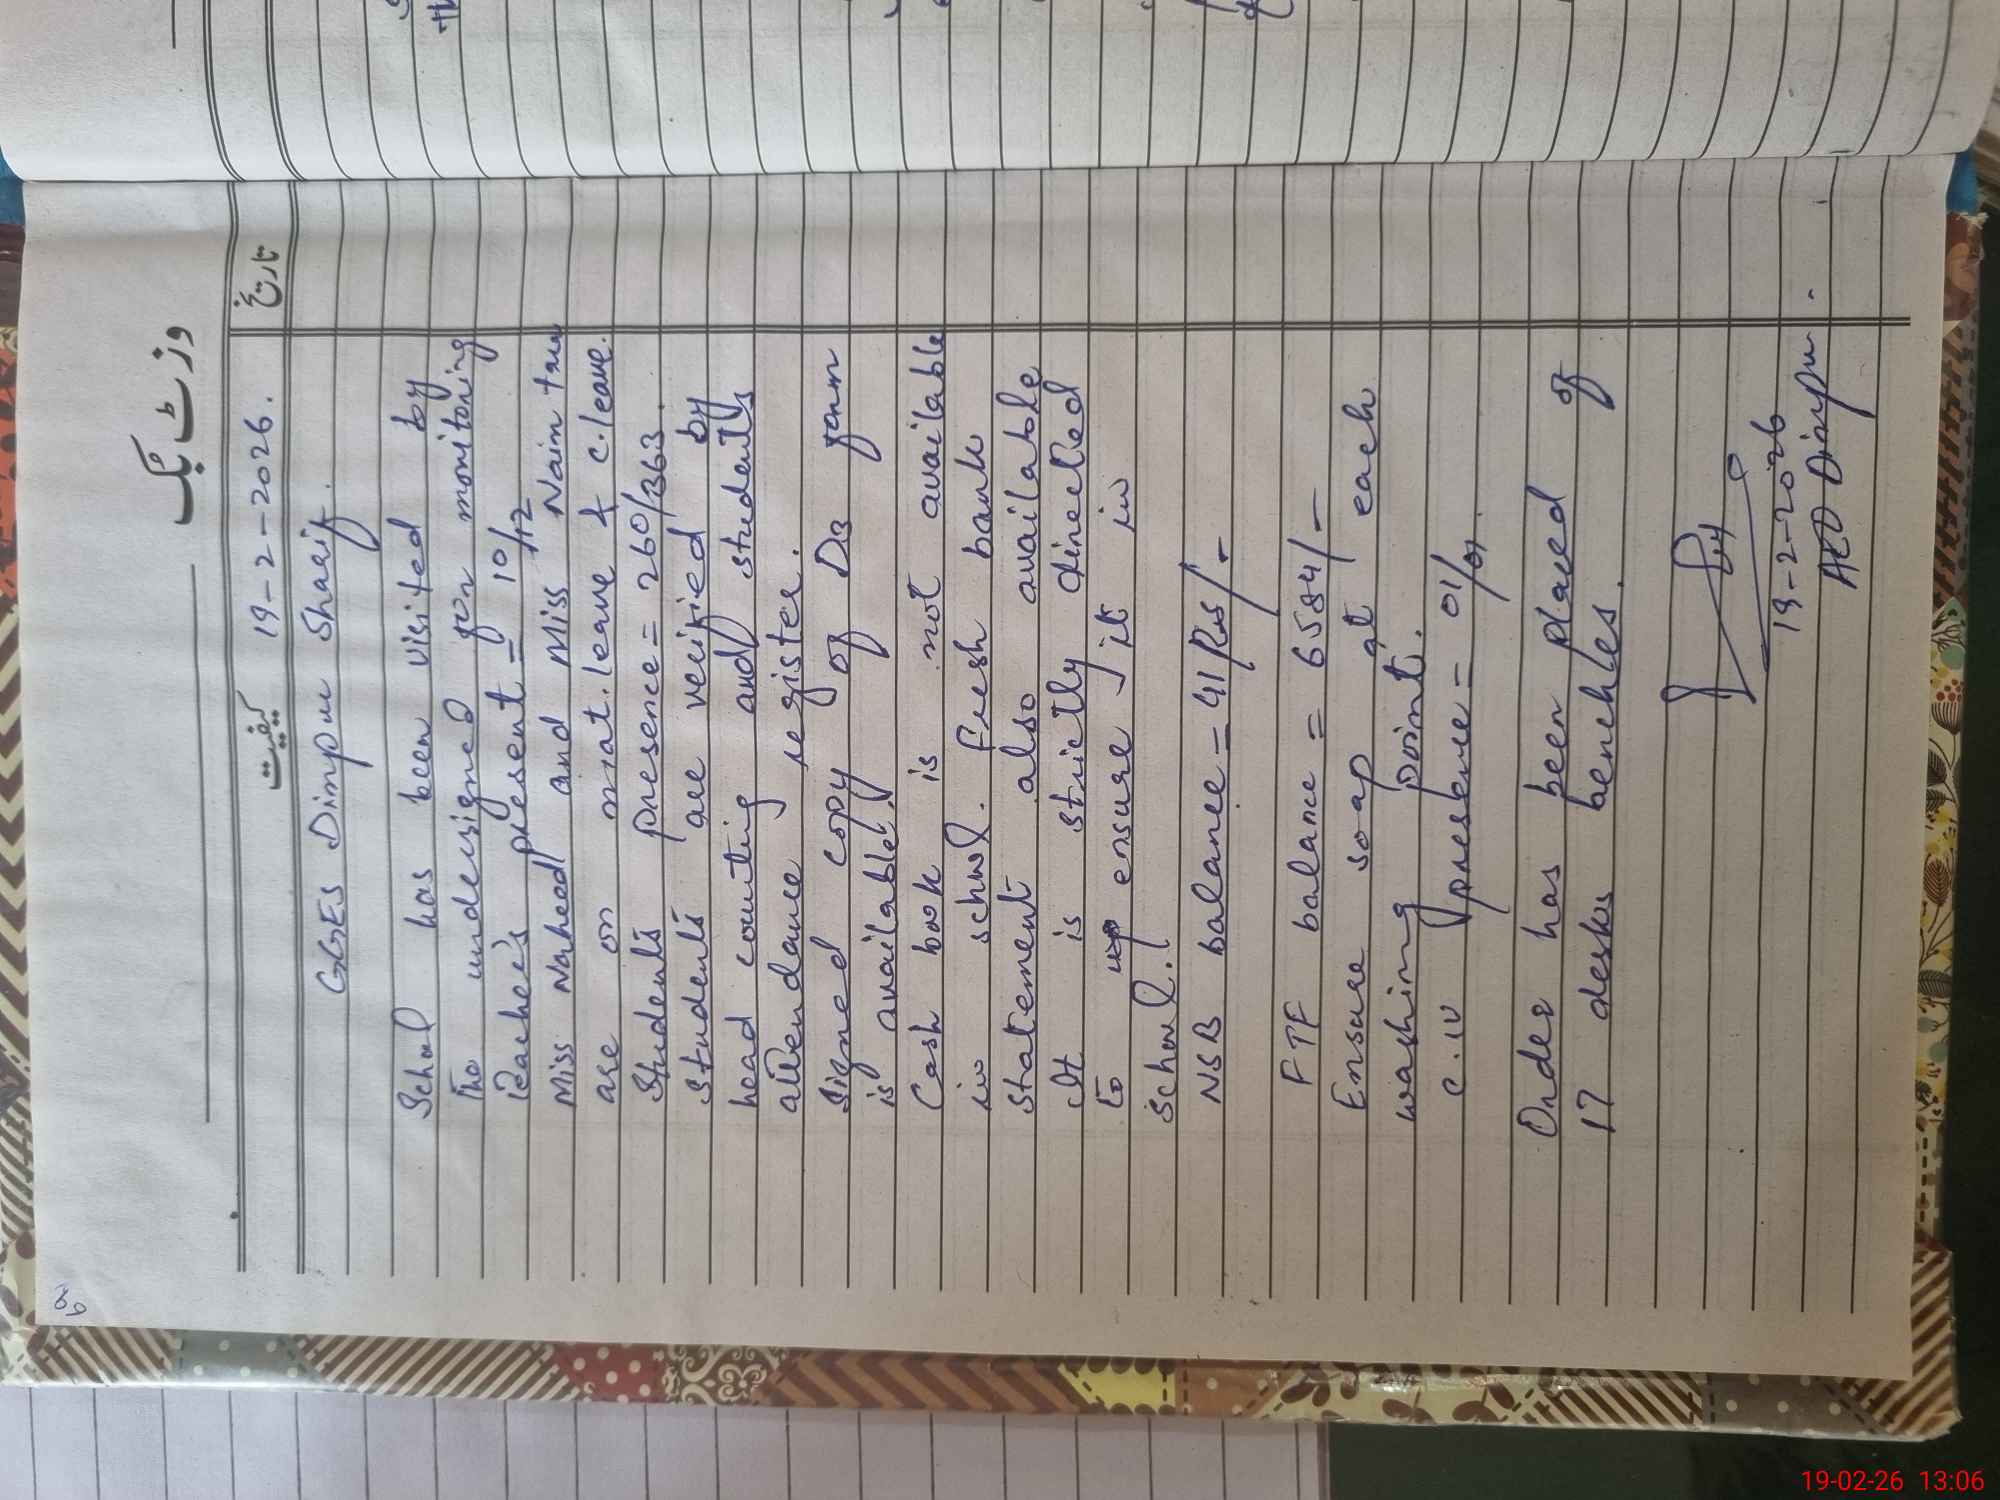 وزٹ بُک
تاریخ
کیفیت
19-2-2026.
GGES Dinpur Sharif.
School has been visited by
the undersigned for monitoring
Teachers present = 10/12
Miss Naheed and Miss Nain tara
are on mat. leave & c. leave.
Students presence = 260/363.
Students are verified by
head counting and students
attendance register.
Signed copy of D3 form
is available.
Cash book is not available
in school. Fresh bank
statement also available
It is strictly directed
to ensure it in
school.
NSB balance = 41 Rus/-
FTF balance = 6584/-
Ensure soap at each
washing point.
C.IV presbence = 01/01.
Order has been placed of
17 desks benchles.
19-2-2026
AEO Dinpur.
19-02-26 13:06